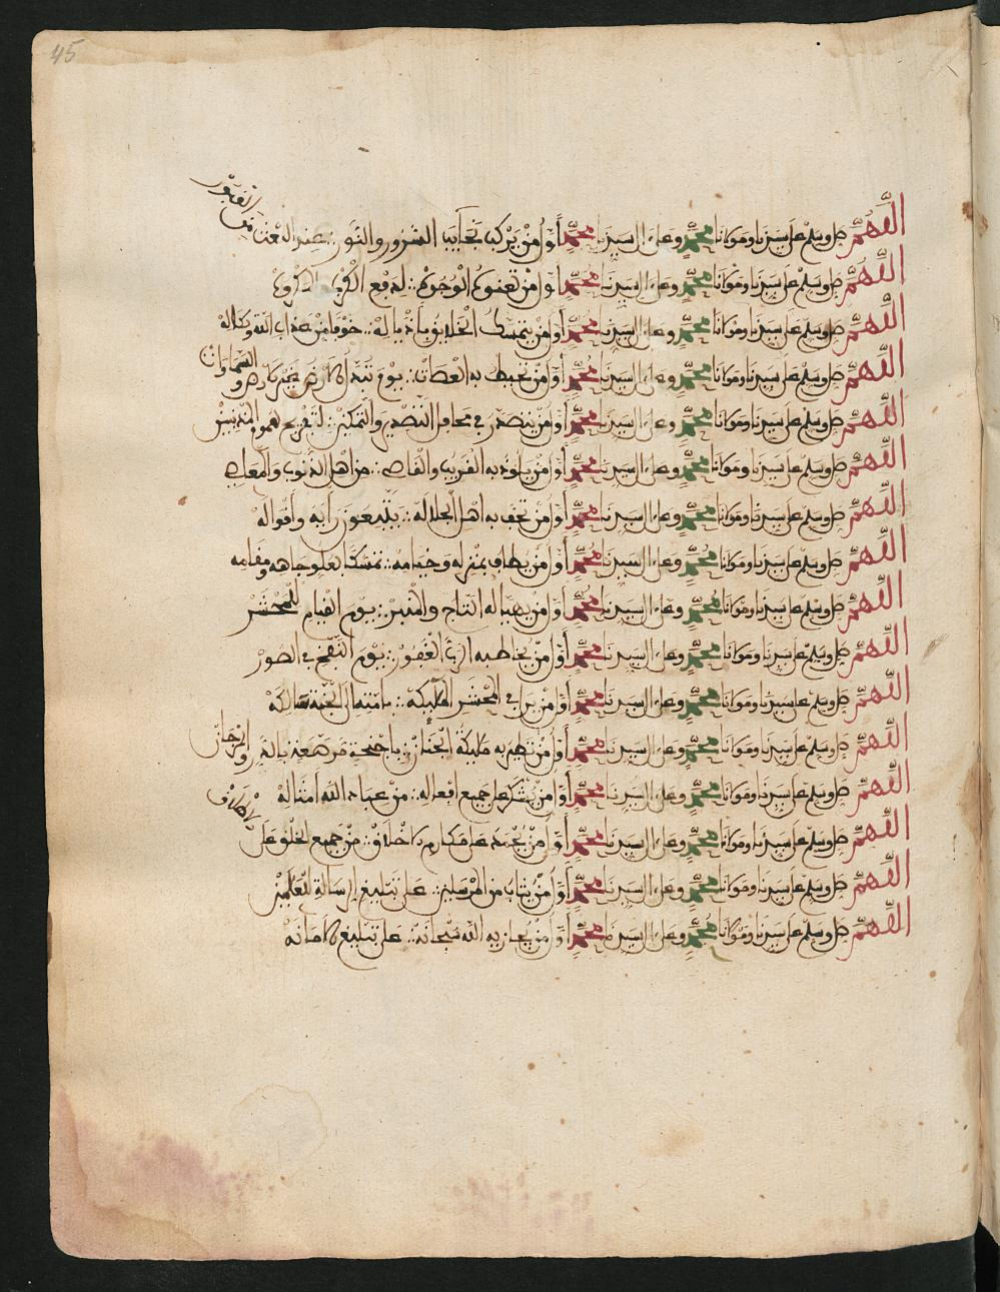 45
اللهم صل وسلم على سيدنا ومولانا محمد وعلى ال سيدنا محمد أول من يركب نجايب السرور والنور عند البعث من القبور
اللهم صل وسلم على سيدنا ومولانا محمد وعلى ال سيدنا محمد أول من تعنو له الوجوه لدفع
اللهم صل وسلم على سيدنا ومولانا محمد وعلى ال سيدنا محمد أول من يتمسك الخلايق بأذياله خوفا من عذاب الله ونكاله
اللهم صل وسلم على سيدنا ومولانا محمد وعلى ال سيدنا محمد أول من تحيط به العصات يوم تبدل الارض غير الارض والسماوات
اللهم صل وسلم على سيدنا ومولانا محمد وعلى ال سيدنا محمد أول من يتصدر في محافل التصدير والتمكين لتفريج هموم المذنبين
اللهم صل وسلم على سيدنا ومولانا محمد وعلى ال سيدنا محمد أول من يلوذ به القريب والقاصي من اهل الذنوب والمعاصي
اللهم صل وسلم على سيدنا ومولانا محمد وعلى ال سيدنا محمد أول من تحف به اهل الجلالة يتبعون رأيه وأقواله
اللهم صل وسلم على سيدنا ومولانا محمد وعلى ال سيدنا محمد أول من يطاف بمنزله وخيامه تمسكا بعلو جاهه ومقامه
اللهم صل وسلم على سيدنا ومولانا محمد وعلى ال سيدنا محمد أول من يهيا له التاج والمنبر يوم القيام للمحشر
اللهم صل وسلم على سيدنا ومولانا محمد وعلى ال سيدنا محمد أول من يخاطبه الرب الغفور يوم النفخ في الصور
اللهم صل وسلم على سيدنا ومولانا محمد وعلى ال سيدنا محمد أول من يرا في المحشر الملئكة بامته الى الجنة سالكة
اللهم صل وسلم على سيدنا ومولانا محمد وعلى ال سيدنا محمد أول من تطير به ملئكة الجنان بأجنحة مرصعة بالدر والمرجان
اللهم صل وسلم على سيدنا ومولانا محمد وعلى ال سيدنا محمد أول من يشكر على جميع افعاله من عباد الله أمثاله
اللهم صل وسلم على سيدنا ومولانا محمد وعلى ال سيدنا محمد أول من يحمد على مكارم الاخلاق من جميع الخلق على الاطلاق
اللهم صل وسلم على سيدنا ومولانا محمد وعلى ال سيدنا محمد أول من يثاب من المرسلين على تبليغ الرسالة للعلمين
اللهم صل وسلم على سيدنا ومولانا محمد وعلى ال سيدنا محمد أول من يجازيه الله سبحانه على تبليغ الامانه